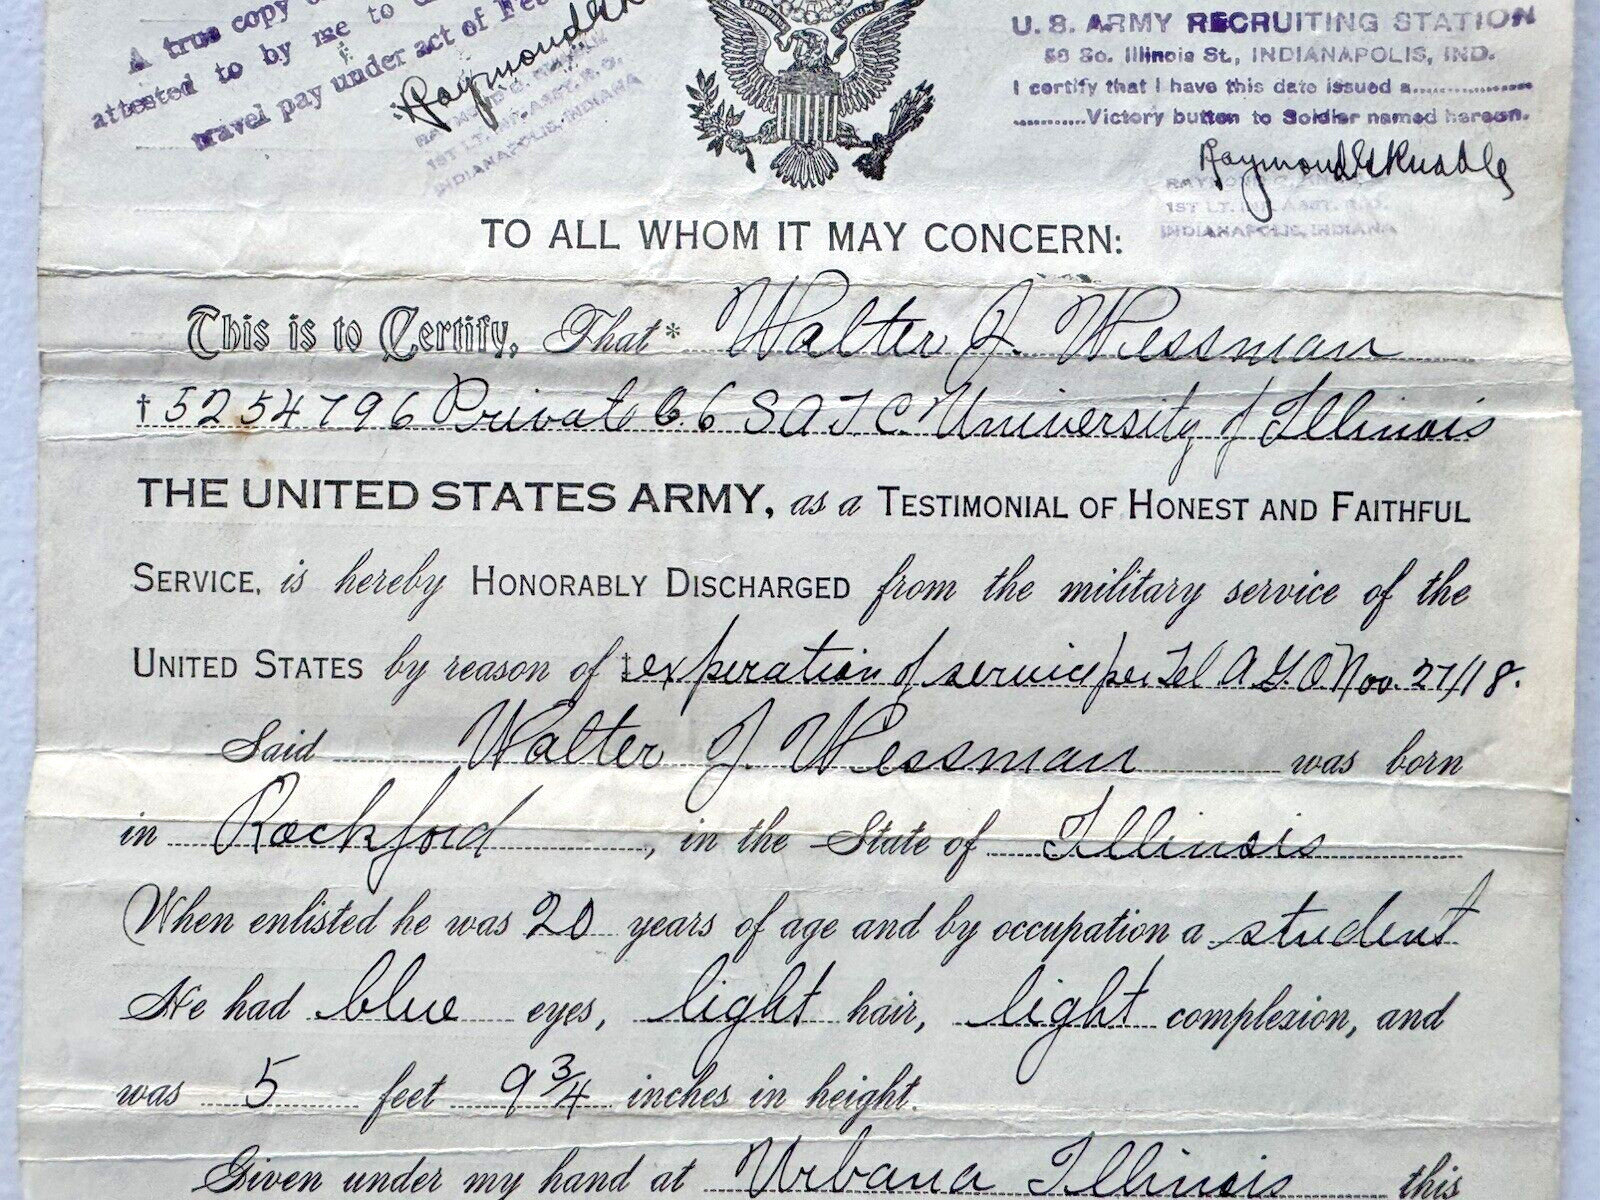 A true copy
attested to by me to
travel pay under act of Fe
Raymond
INDIANAPOLIS, INDIANA
U. S. ARMY RECRUITING STATION
56 So. Illinois St., INDIANAPOLIS, IND.
I certify that I have this date issued a
Victory button to Soldier named hereon.
Raymond
1ST LT. INF. ASST. R. O.
INDIANAPOLIS, INDIANA
TO ALL WHOM IT MAY CONCERN:
This is to Certify, That* Walter J. Wessman
†5254796 Private Co. 6 SATC. University of Illinois
THE UNITED STATES ARMY, as a TESTIMONIAL OF HONEST AND FAITHFUL
SERVICE, is hereby HONORABLY DISCHARGED from the military service of the
UNITED STATES by reason of ‡experation of service per Tel A.G.O. Nov. 27/18.
Said Walter J. Wessman was born
in Rockford, in the State of Illinois
When enlisted he was 20 years of age and by occupation a student
He had blue eyes, light hair, light complexion, and
was 5 feet 9 3/4 inches in height.
Given under my hand at Urbana Illinois this